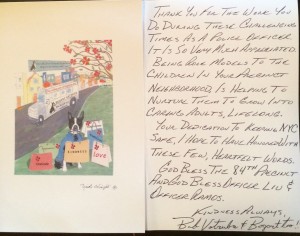 KINDNESS
LOVE
THANK YOU FOR THE WORK YOU
DO DURING THESE CHALLENGING
TIMES AS A POLICE OFFICER
IT IS SO VERY MUCH APPRECIATED.
BEING ROLE MODELS TO THE
CHILDREN IN YOUR PRECINCT
NEIGHBORHOOD, IS HELPING TO
NURTURE THEM TO GROW INTO
CARING ADULTS, LIFELONG.
YOUR DEDICATION TO KEEPING NYC
SAFE, I HOPE TO HAVE HONORED WITH
THESE FEW, HEARTFELT WORDS.
GOD BLESS THE 84TH PRECINCT
AND GOD BLESS OFFICER LIU &
OFFICER RAMOS.
KINDNESS ALWAYS,
Bob